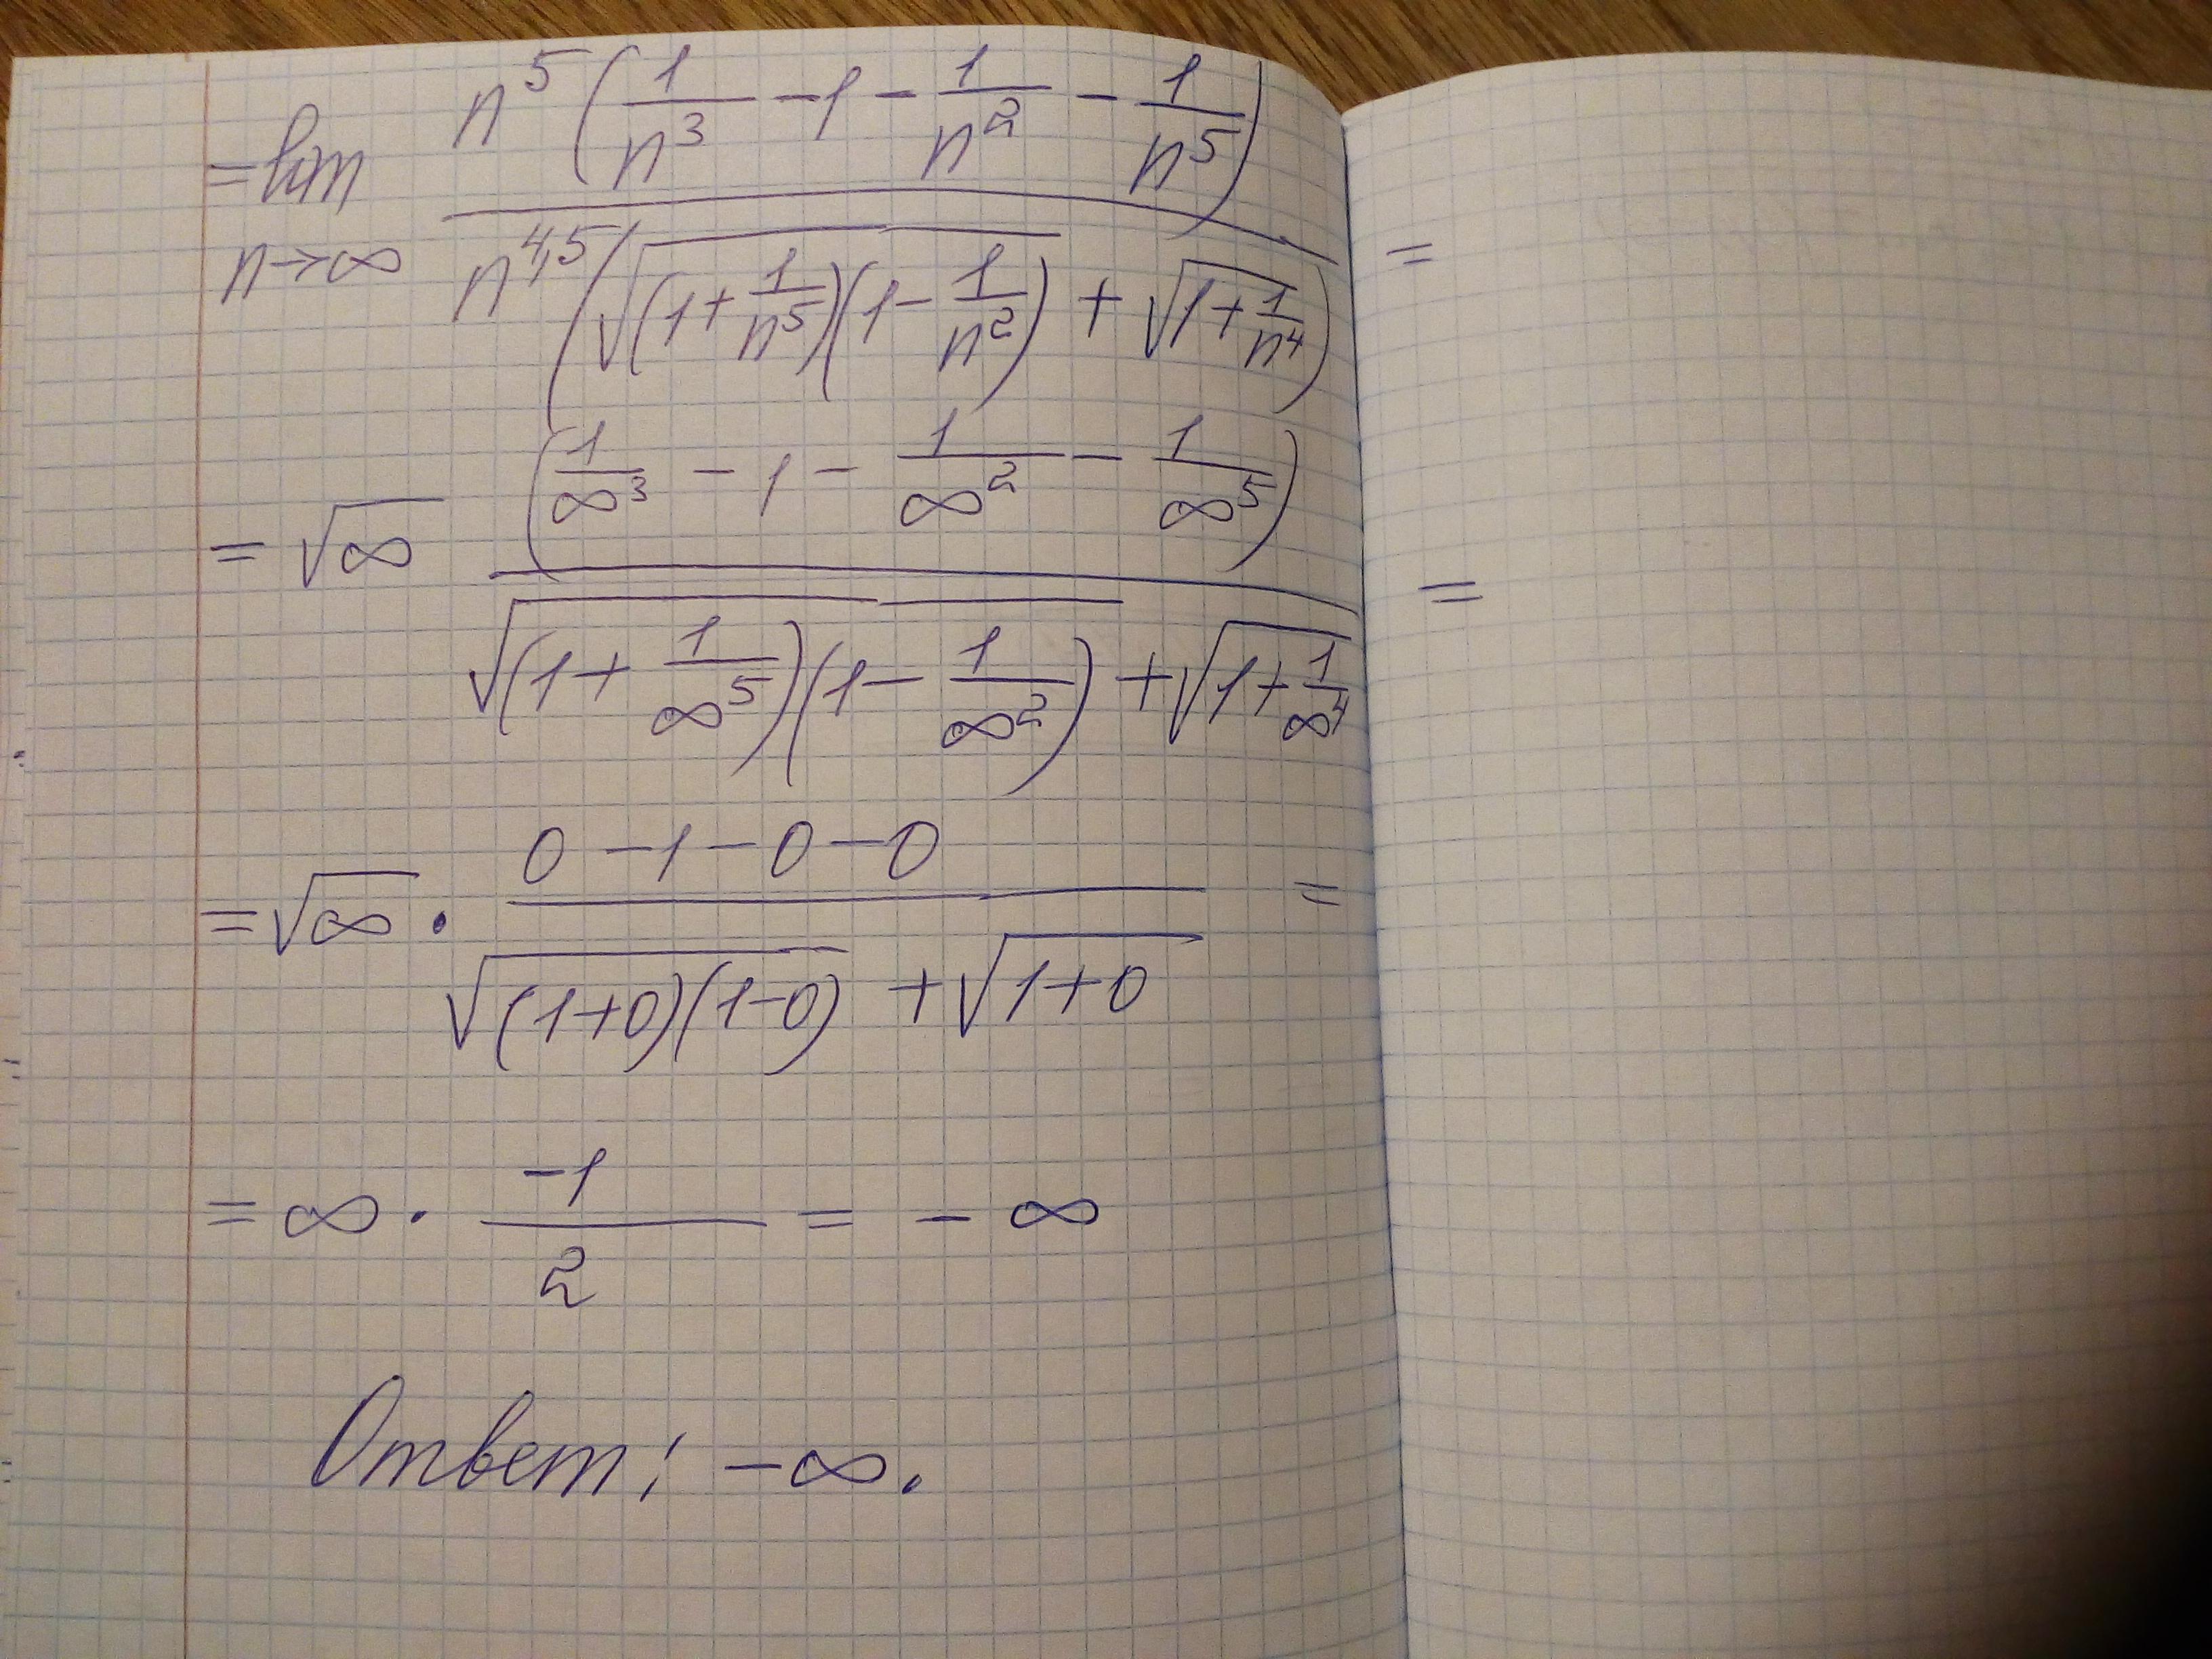 = lim n→∞ n^5 (1/n^3 - 1 - 1/n^2 - 1/n^5) / n^4,5 (√((1 + 1/n^5)(1 - 1/n^2)) + √(1 + 1/n^4)) =
= √∞ (1/∞^3 - 1 - 1/∞^2 - 1/∞^5) / (√((1 + 1/∞^5)(1 - 1/∞^2)) + √(1 + 1/∞^4)) =
= √∞ · (0 - 1 - 0 - 0) / (√((1+0)(1-0)) + √(1+0)) =
= ∞ · -1/2 = - ∞
Ответ: -∞.